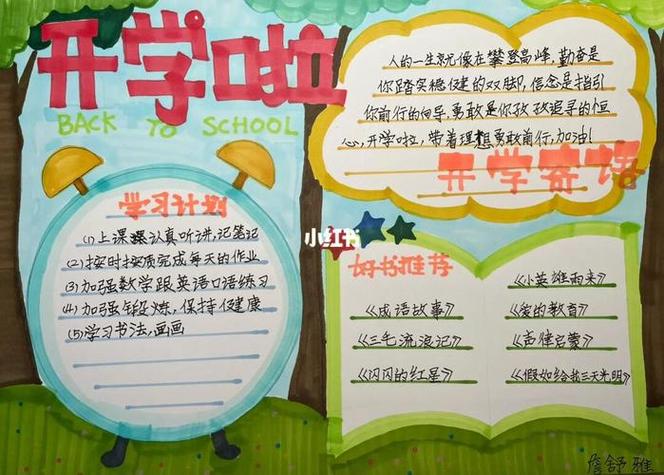 开学啦
BACK TO SCHOOL
学习计划
(1)上课认真听讲,记笔记
(2)按时按质完成每天的作业
(3)加强数学跟英语口语练习
(4)加强锻炼,保持健康
(5)学习书法,画画
人的一生就像在攀登高峰,勤奋是
你踏实稳健的双脚,信念是指引
你前行的向导,勇敢是你孜孜追寻的恒
心,开学啦,带着理想勇敢前行,加油!
开学寄语
小红书
好书推荐
《成语故事》
《三毛流浪记》
《闪闪的红星》
《小英雄雨来》
《爱的教育》
《声律启蒙》
《假如给我三天光明》
詹舒雅